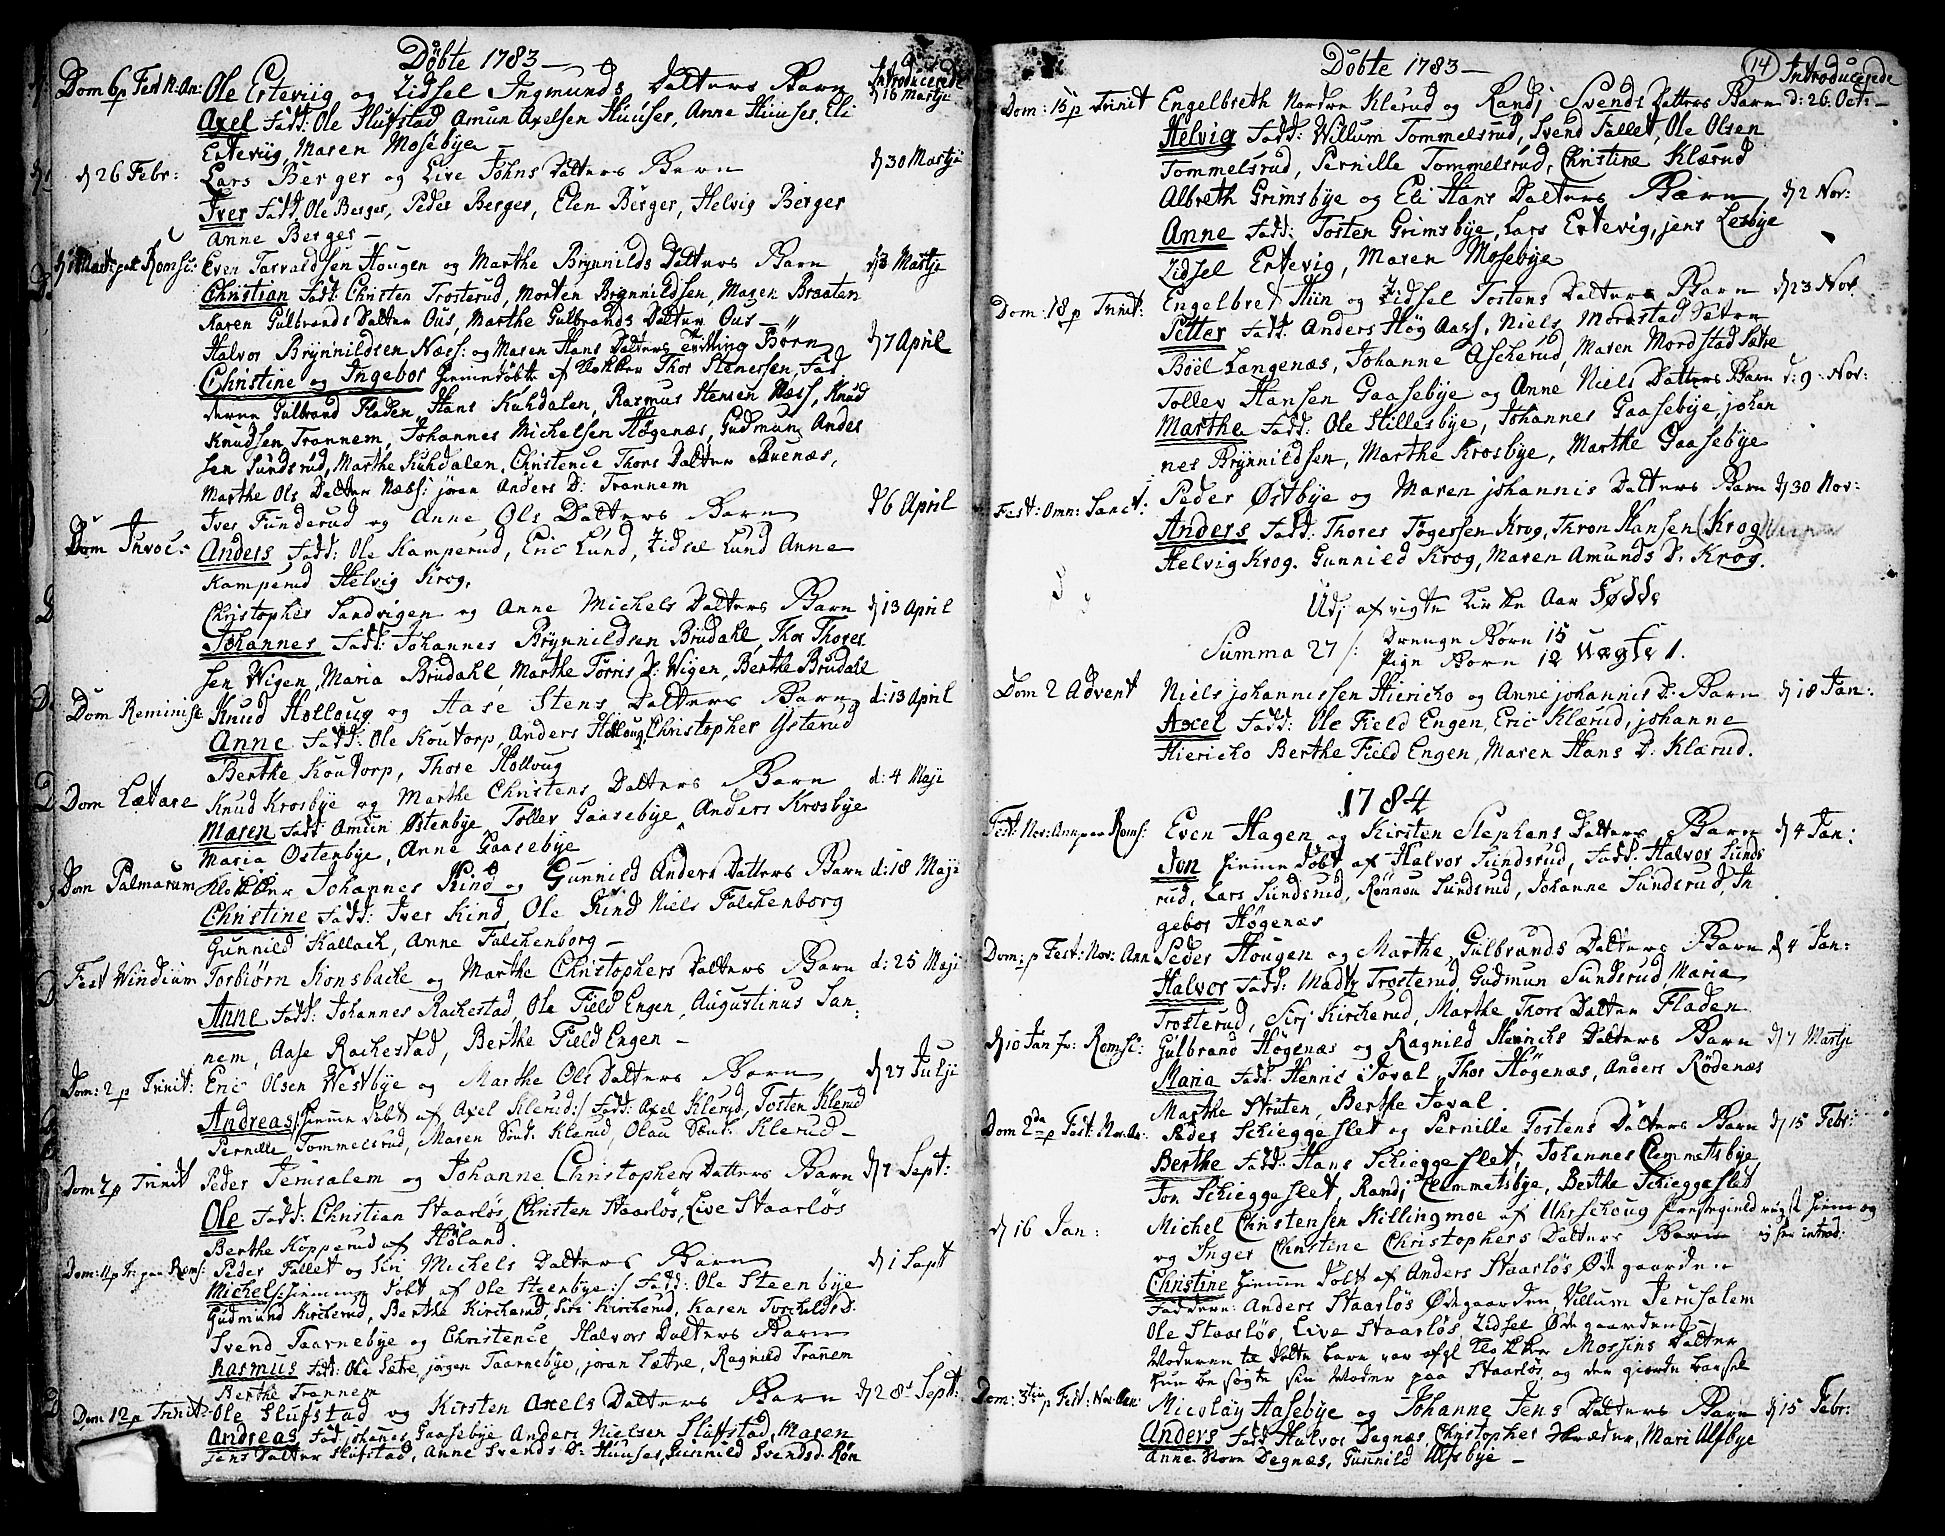 Döbte 1783 —
Introducerede
Dom 6 p Fest N: An: Ole Ertevüg og Zidsel Ingmunds Datters Barn d 16 Martje
Axel Fadd: Ole Slufstad Amun Axelsen Huuser, Anne Huuser, Eli
Ertevüg Maren Mosebye
d 26 Febr: Lars Berger og Live Johns Datters Barn d 30 Martje
Iver Fadd: Ole Berger, Peder Berger, Elen Berger, Helvig Berger
Anne Berger —
Romsi: Even Tarvaldsen Hougen og Marthe Brynnilds Datters Barn d 3 Martje
Christian Fadd: Christen Trosterud, Morten Brynnildsen, Maren Braaten
Karen Gulbrands Datter Ous, Marthe Gulbrands Datter Ous
Halvor Brynnildsen Næss: og Maren Hans Datters Tvilling Börn d 7 April
Christine og Ingebor hiemedöbte af Klokker Thor Stenersen, Fad
derne Gulbrand Fladen, Hans Kuhdalen, Rasmus Stensen Næss, Knud
Knudsen Trannem, Johannes Michelsen Högenæs, Gudmun Ander
sen Sundsrud, Marthe Kuhdalen, Christence Thors Datter Buenæs,
Marthe Ols Datter Næss: jören Anders D: Trannem
Dom Invoc: Iver Funderud og Anne Ols Datters Barn d 6 April
Anders Fadd: Ole Kamperud, Eric Lund, Zidsel Lund Anne
Kamperud Helvig Krog.
Christopher Sandvigen og Anne Michels Datters Barn d 13 April
Johannes Fadd: Johannes Brynnildsen Brudahl, Thor Thorer
sen Wigen, Maria Brudahl, Marthe Torris D: Wigen, Berthe Brudahl
Dom Reminise Knud Holloug og Aase Stens Datters Barn d: 13 April
Anne Fadd: Ole Koutorp, Anders Holloug, Christopher Ysterud
Berthe Koutorp, Thore Holloug
Dom Lætare Knud Krosbye og Marthe Christens Datters Barn d: 4 Maji
Maren Fadd: Amun Østenbye, Tollev Gaasebye Anders Krosbye
Maria Ostenbye, Anne Gaasebye
Dom Palmarum Klokker Johannes Kind og Gunnild Anders Datters Barn d: 18 Maji
Christine Fadd: Iver Kind, Ole Kind Niels Falchenborg
Gunnild Kallach, Anne Falchenborg —
Fest Windium Torbiørn Kionsbacke og Marthe Christophers Datters Barn d: 25 Maji
Anne Fadd: Johannes Rachestad, Ole Field Engen, Augustinus San
nem, Aase Rachestad, Berthe Field Engen —
Dom: 2 p Trinit: Eric Olsen Westbye og Marthe Ols Datters Barn d 27 Julji
Andreas /: hiemme döbt af Axel Klerud :/ Fadd: Axel Klerud, Tosten Klerud
Pernille Tommelsrud, Maren Klerud, Olau Klerud —
Dom 7 p Trinit Peder Jerusalem og Johanne Christophers Datters Barn d 7 Sept:
Ole Fadd: Christian Staarlös, Christen Staarlös, Live Staarlös
Berthe Kopperud af Höland.
Dom: 11 p Tr: paa Roms: Peder Fallet og Siri Michels Datters Barn d 1 Sept
Michel /: hiemme döbt af Ole Steenbye :/ Fadd: Ole Steenbye
Gudmund Kircherud, Berthe Kircherud, Siri Kircherud, Karen Torchelds D.
Svend Taarnebye og Christence Halvors Datters Barn
Rasmus Fadd: Ole Sætre, jørgen Taarnebye, joran Sætre, Ragnild Trannem
Berthe Trannem
Dom 12 p Trinit: Ole Slufstad og Kirsten Axels Datters Barn d 28 Sept:
Andreas Fad: johanes Gaasebye Anders Nielsen Sluffstad, Maren
Jens Datter Slufstad, Anne Svends D: Huuser, Gunnild Svendsd. Røn
Döbte 1783 —
14 Introducerede
Dom: 15 p Trinit Engelbreth Nordre Klerud og Randj Svends Datters Barn d: 26. Oct: —
Helvig Fadd: Willum Tommelsrud, Svend Fallet, Ole Olsen
Tommelsrud, Pernille Tommelsrud, Christine Klærud
Albreth Grimsbye og Eli Hans Datters Barn d 2 Nov:
Anne Fadd: Tosten Grimsbye, Lars Ertevig, jens Lesbye
Zidsel Ertevig, Maren Mosebye
Dom: 18 p Trinit: Engelbret Hün og Zidsel Tostens Datters Barn d 23 Nov.
Petter Fadd: Anders Høg Aass, Niels Mordstad Sætre
Böel Langenæs, Johanne Ascherud, Maren Mordstad Sætre
Tollev Hansen Gaasebye og Anne Niels Datters Barn d: 9 Nov:
Marthe Fadd: Ole Stillesbye, Johannes Gaasebye, johan
nes Brynnildsen, Marthe Krosbye, Marthe Gaasebye
Fest: Omn: Sanct: Peder Østbye og Maren johannis Datters Barn d 30 Nov:
Anders Fadd: Thores Togersen Krog, Thron Hansen (Krog)
Helvig Krog. Gunnild Krog, Maren Amunds D: Krog.
Udj afvigte Kirke Aar Fødde
Summa 27 /: Drenge Børn 15
Pige Børn 12 Uægte 1.
Dom 2 Advent Niels johannissen Hiericho og Anne johannis D: Barn d 18 Jan:
Axel Fadd: Ole Field Engen, Eric Klærud, johanne
Hiericho Berthe Field Engen, Maren Hans D: Klærud.
1784
Fest: Nov: Ann paa Roms: Even Hagen og Kirsten Stephans Datters Barn d 4 Jan:
Jon hiemme döbt af Halvor Sundsrud, Fadd: Halvor Sunds
rud, Lars Sundsrud, Rönnou Sundsrud, Johanne Sundsrud, In
gebor Høgenæs
Dom: p Fest: Nov: Ann Peder Hougen og Marthe Gulbrands Datters Barn d 4 Jan:
Halvor Fadd: Madtz Trosterud, Gudmun Sundsrud, Maria
Trosterud, Sirj Kircherud, Marthe Thors Datter Fladen
d 10 Jan Fr: Romsi: Gulbrand Högenæs og Ragnild Henrichs Datters Barn d 7 Martje
Maria Fadd: Henric Joval, Thor Høgenæs, Anders Rödenæs
Marthe Struten, Berthe Joval
Dom 2da p Fest: Nov. An: Peder Schieggeslet og Pernille Tostens Datters Barn d 15 Febr:
Berthe Fadd: Hans Schieggeslet, Johannes Clemmetsbye
Jon Schieggeslet, Randj Clemmetsbye, Berthe Schieggeslet
d 16 Jan: Michel Christensen Killingmoe af Uhrschoug Præstegield
og Inger Christine Christophers Datters Barn ej her introd:
Christine hiemme döbt af Anders Staarlös Ødegaarden
Faddere: Anders Staarlös Ødegaarden, Villum Jerusalem
Ole Staarlös, Live Staarlös, Zidsel Ødegaarden
Moderen til dette barn var afgl Klokker Mossins Datter
hun besøgte sin Moder paa Staarlös, og der giorde barsel
Dom: 3tia p Fest: Nov: Ann: Nicolay Aasebye og Johanne Jens Datters Barn d 15 Febr:
Anders Fadd: Halvor Degnæs, Christopher Skræder, Mari Alfbye
Anne Degnæs, Gunnild Ulfsbye —